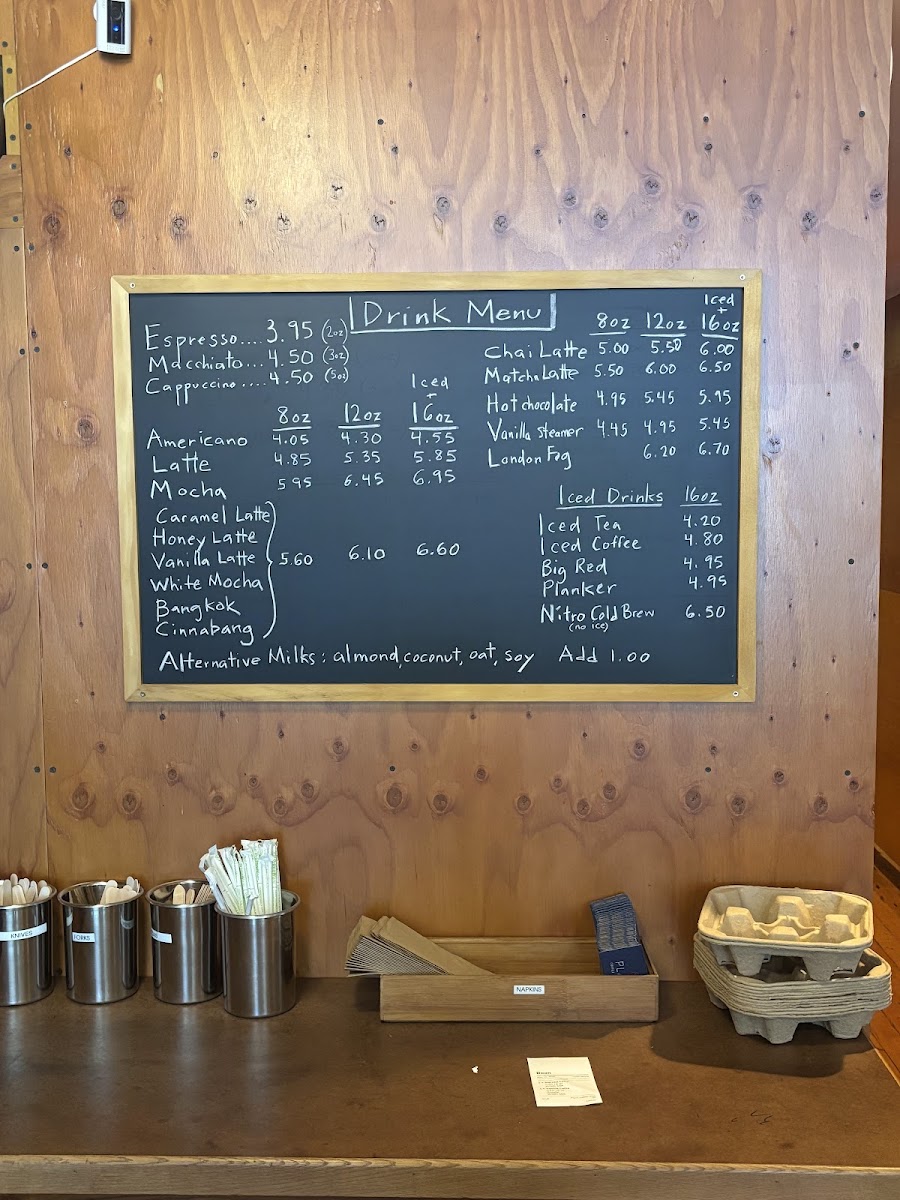 Drink Menu
Espresso....3.95 (2oz)
Macchiato...4.50 (3oz)
Cappuccino....4.50 (5oz)
Iced
+
8oz 12oz 16oz
Americano 4.05 4.30 4.55
Latte 4.85 5.35 5.85
Mocha 5.95 6.45 6.95
Caramel Latte
Honey Latte
Vanilla Latte 5.60 6.10 6.60
White Mocha
Bangkok
Cinnabang
Iced
+
8oz 12oz 16oz
Chai Latte 5.00 5.50 6.00
Matcha Latte 5.50 6.00 6.50
Hot chocolate 4.95 5.45 5.95
Vanilla Steamer 4.45 4.95 5.45
London Fog 6.20 6.70
Iced Drinks 16oz
Iced Tea 4.20
Iced Coffee 4.80
Big Red 4.95
Planker 4.95
Nitro Cold Brew 6.50
(no ice)
Alternative Milks: almond, coconut, oat, soy Add 1.00
KNIVES
FORKS
NAPKINS